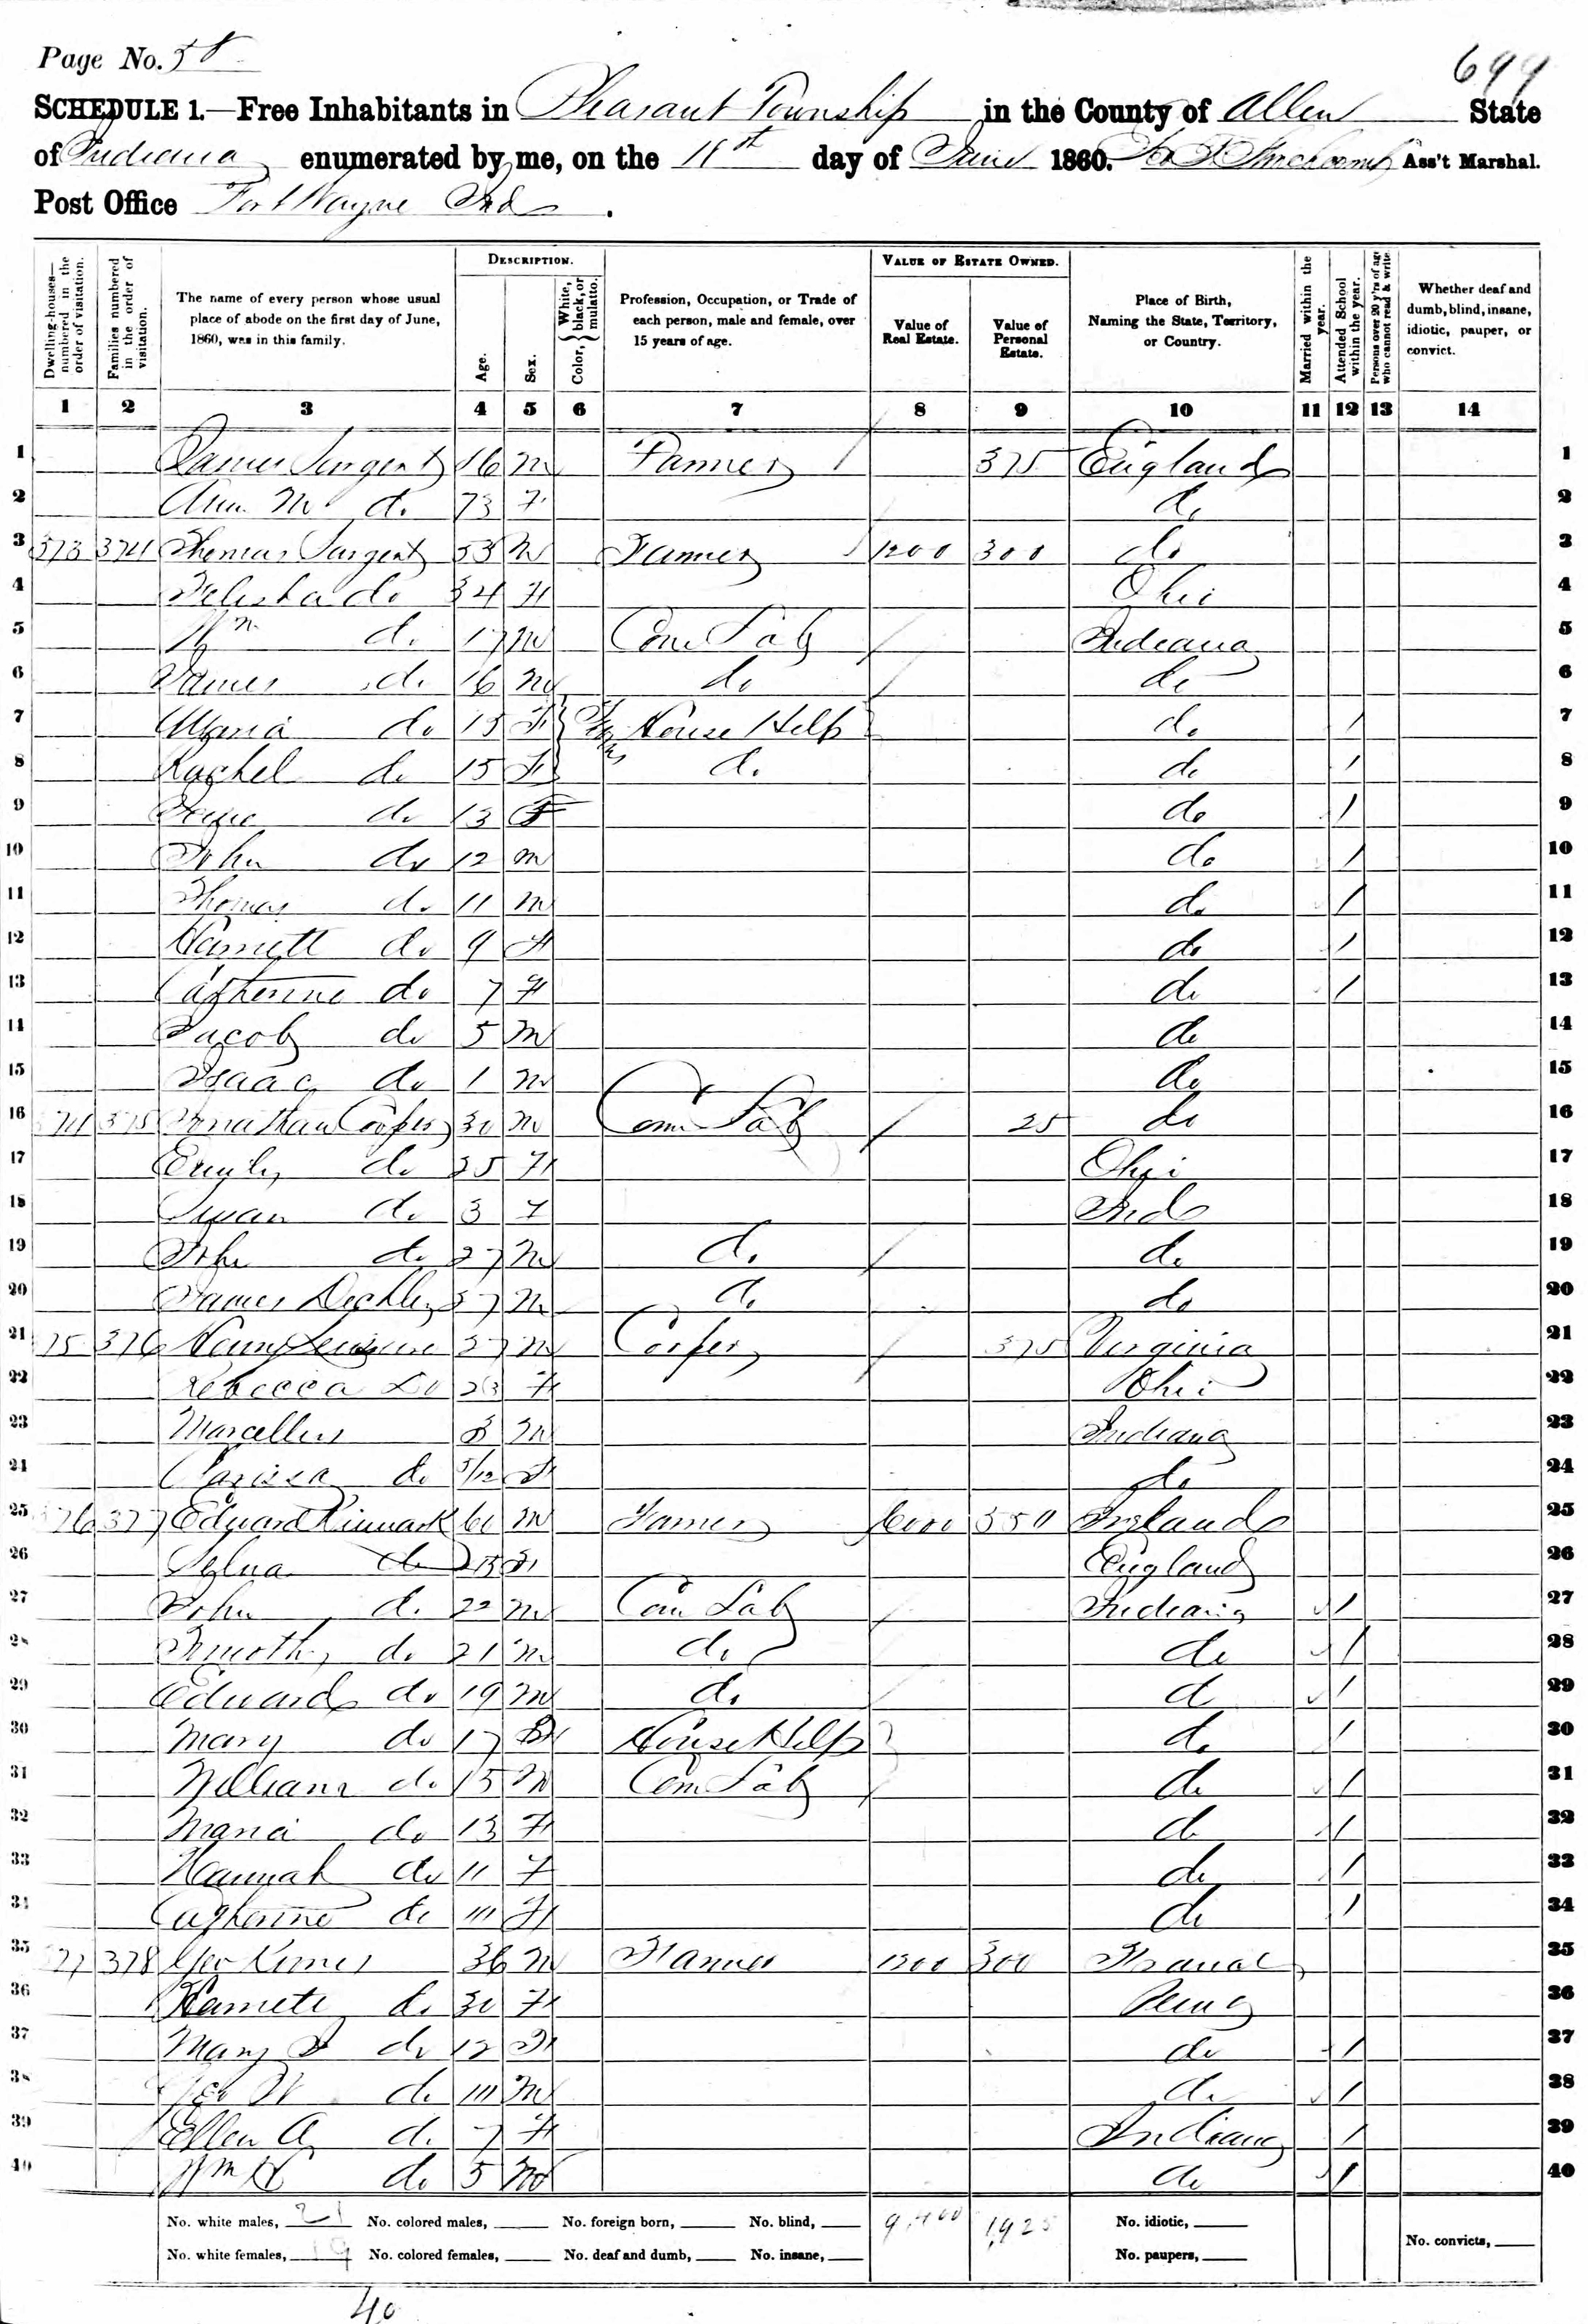 Page No. 58
699
SCHEDULE 1.—Free Inhabitants in Pleasant Township in the County of Allen State
of Indiana enumerated by me, on the day of June 1860. Ass't Marshal.
Post Office Fort Wayne Ind.
Dwelling-houses—numbered in the order of visitation.
Families numbered in the order of visitation.
The name of every person whose usual place of abode on the first day of June, 1860, was in this family.
DESCRIPTION.
Age.
Sex.
Color, { White, black, or mulatto.
Profession, Occupation, or Trade of each person, male and female, over 15 years of age.
VALUE OF ESTATE OWNED.
Value of Real Estate.
Value of Personal Estate.
Place of Birth, Naming the State, Territory, or Country.
Married within the year.
Attended School within the year.
Persons over 20 y'rs of age who cannot read & write.
Whether deaf and dumb, blind, insane, idiotic, pauper, or convict.
1 2 3 4 5 6 7 8 9 10 11 12 13 14
1 James Sergent M Farmer / 375 England 1
2 Ann M do 73 F do 2
3 373 374 Thomas Sargent 53 M Farmer / 1200 300 do 3
4 do 34 F Ohio 4
5 Wm do 17 M Com Lab / Indiana 5
6 James do 16 M do / do 6
7 Maria do 15 F House Help do / 7
8 Rachel do 15 F do do / 8
9 Jane do 13 F do / 9
10 John do 12 M do / 10
11 Thomas do 11 M do / 11
12 Harriett do 9 F do / 12
13 Catherine do 7 F do / 13
14 Jacob do 5 M do 14
15 Isaac do 1 M do 15
16 374 375 Jonathan Cooper 30 M Com Lab / 25 do 16
17 Emily do 25 F Ohio 17
18 Susan do 3 F Ind 18
19 John do 27 M do / do 19
20 James 37 M do do 20
21 75 376 Henry 27 M Cooper / 375 Virginia 21
22 Rebecca Do 23 F Ohio 22
23 Marcellus 3 M Indiana 23
24 Clarissa do 5/12 F do 24
25 376 377 Edward Kinnark 60 M Farmer 6000 550 Ireland 25
26 do F England 26
27 John do 22 M Com Lab / Indiana / 27
28 Timothy do 21 M do / do / 28
29 Edward do 19 M do / do / 29
30 Mary do 17 F House Help do / 30
31 William do 15 M Com Lab / do / 31
32 Maria do 13 F do / 32
33 Hannah do 11 F do / 33
34 Catherine do 10 F do / 34
35 77 378 Geo Kimes 36 M Farmer 1200 300 France 35
36 Harriett do 30 F Penn 36
37 Mary do 12 F do / 37
38 Geo W do 10 M do / 38
39 Ellen A do 7 F Indiana / 39
40 Wm H do 5 M do / 40
No. white males, 21 No. colored males, No. foreign born, No. blind, 9,400 1,925 No. idiotic,
No. white females, 19 No. colored females, No. deaf and dumb, No. insane, No. paupers, No. convicts,
40